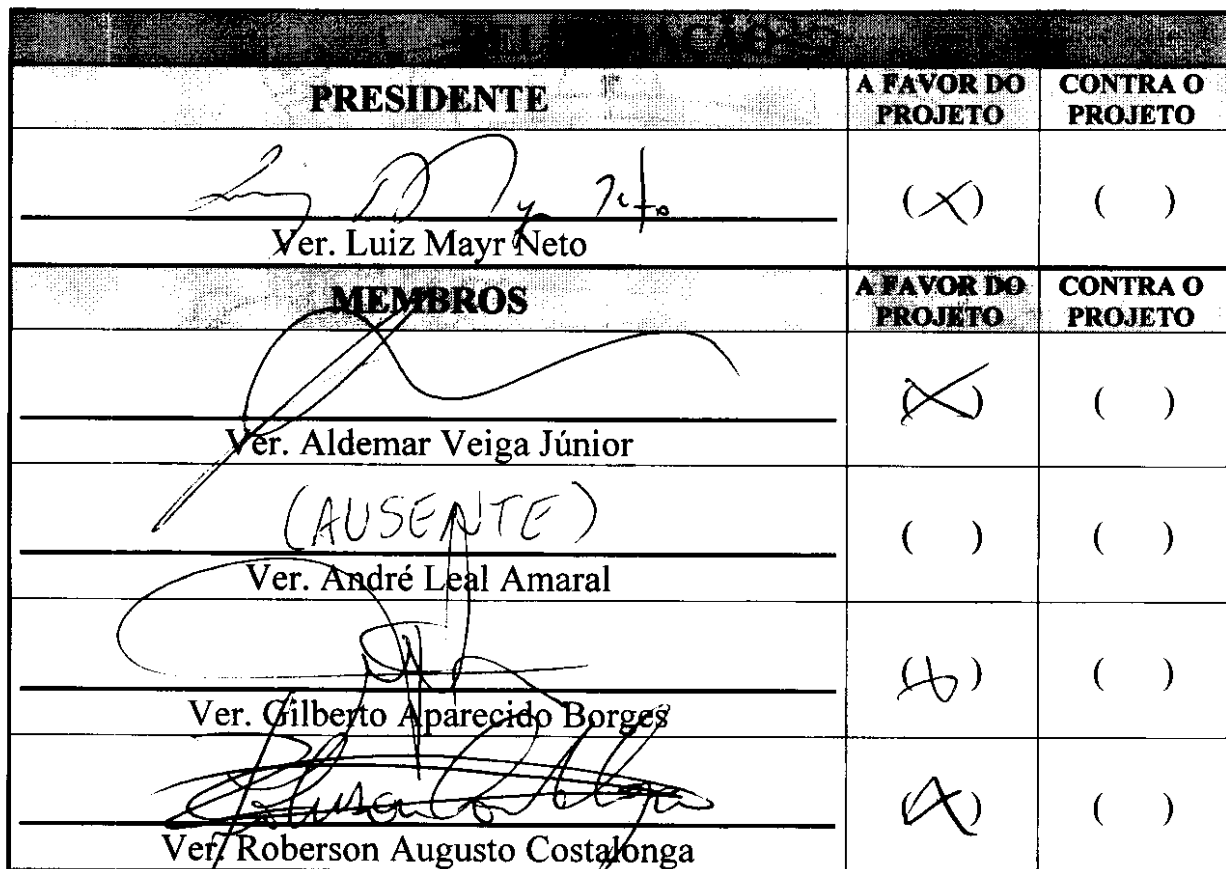 DELIBERAÇÃO
PRESIDENTE A FAVOR DO PROJETO CONTRA O PROJETO
(X) ( )
Ver. Luiz Mayr Neto
MEMBROS A FAVOR DO PROJETO CONTRA O PROJETO
(X) ( )
Ver. Aldemar Veiga Júnior
(AUSENTE) ( ) ( )
Ver. André Leal Amaral
(X) ( )
Ver. Gilberto Aparecido Borges
(X) ( )
Ver. Roberson Augusto Costalonga